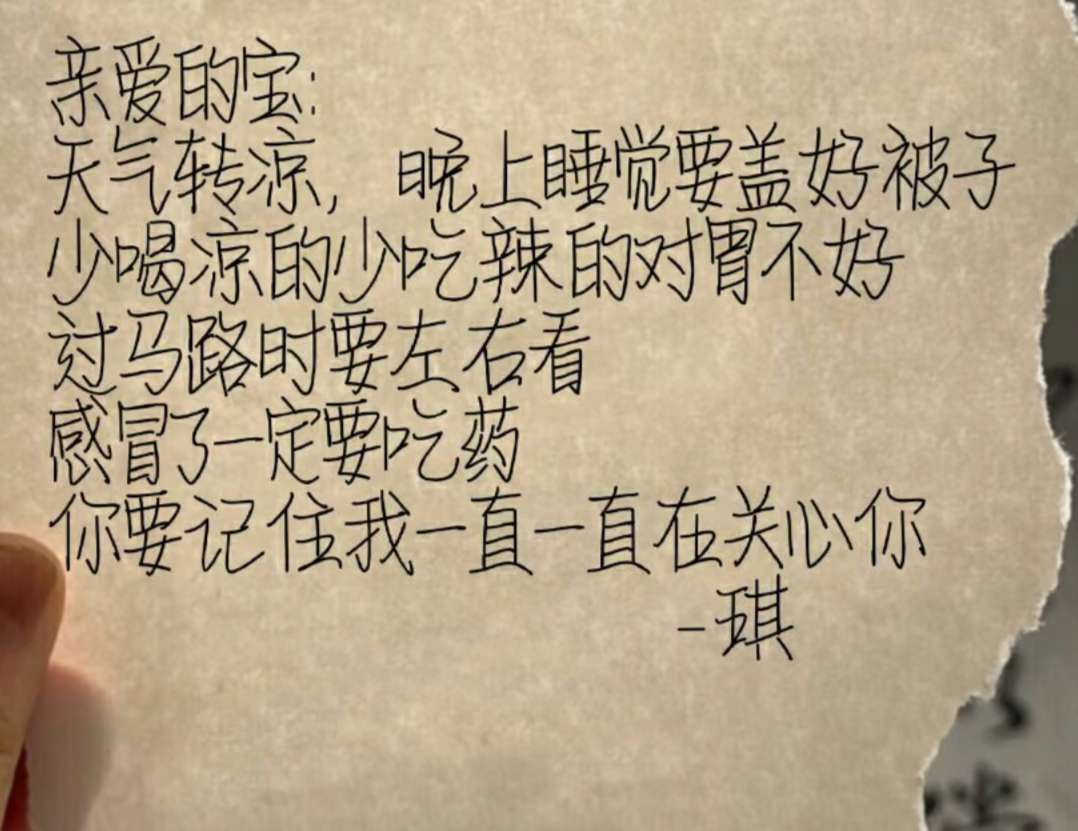 亲爱的宝:
天气转凉, 晚上睡觉要盖好被子
少喝凉的少吃辣的对胃不好
过马路时要左右看
感冒了一定要吃药
你要记住我一直一直在关心你
-琪